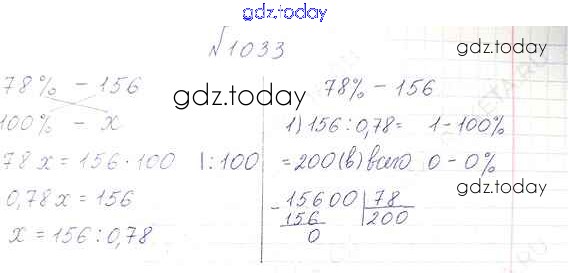 gdz.today
№1033
gdz.today
78% – 156
100% – x
78x = 156 · 100 | : 100
0,78x = 156
x = 156 : 0,78
gdz.today
78% – 156
1) 156 : 0,78 = 1 – 100%
= 200 (в) всего 0 – 0%
15600 | 78
– 156 | 200
0
gdz.today